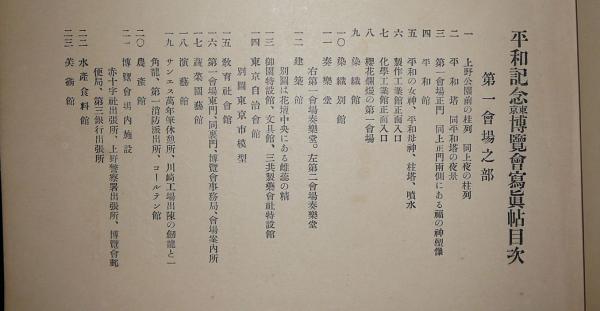 平和記念東京博覽會寫眞帖目次
第一會場之部
一 上野公園前の柱列 同上夜の柱列
二 平和塔 同平和塔の夜景
三 第一會場正門 同上正門兩側にある福の神塑像
四 平和館
五 平和の女神、平和母神、柱塔、噴水
六 製作工業館正面入口
七 化學工業館正面入口
八 櫻花爛熳の第一會場
九 染織館
一〇 染織別館
一一 奏樂堂
右第一會場奏樂堂。左第二會場奏樂堂
一二 建築館
別圖は花壇中央にある雌蕊の精
一三 御園特設館、文具館、三共製藥會社特設館
一四 東京自治會館
別圖東京市模型
一五 敎育社會館
一六 第一會場東門、同裏門、博覽會事務局、會場案內所
一七 蔬菜園藝館
一八 演藝館
一九 サンエス萬年筆休憩所、川崎工場出陳の劒龍と一
角龍、第一消防派出所、コールテン館
二〇 農產館
二一 博覽會場內施設
赤十字社出張所、上野警察署出張所、博覽會郵
便局、第三銀行出張所
二二 水產食料館
二三 美術館